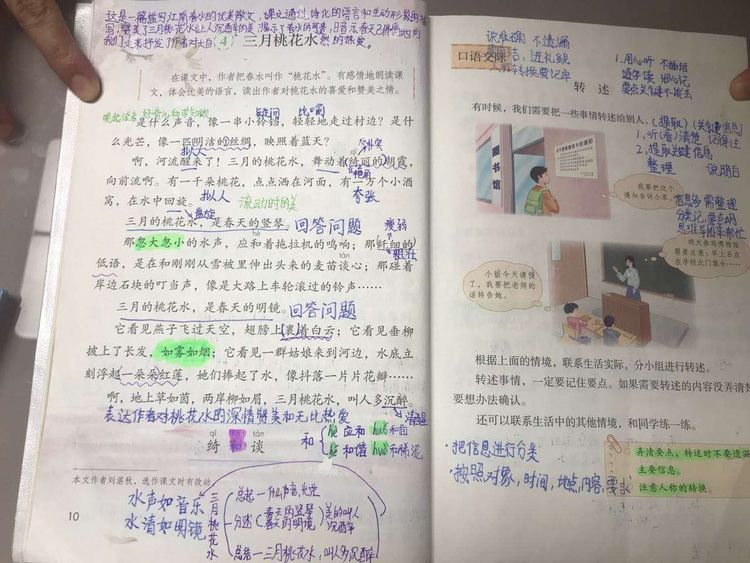 三月桃花水
④
在课文中，作者把春水叫作“桃花水”。有感情地朗读课
文，体会优美的语言，读出作者对桃花水的喜爱和赞美之情。
疑问 比喻
是什么声音，像一串小铃铛，轻轻地走过村边？是什
么光芒，像一匹明洁的丝绸，映照着蓝天？
拟人
啊，河流醒来了！三月的桃花水，舞动着绮丽的朝霞，
向前流啊。有一千朵桃花，点点洒在河面，有一万个小酒
窝，在水中回旋。
拟人 流动时的美 夸张
盘旋
三月的桃花水，是春天的竖琴。回答问题
那忽大忽小的水声，应和着拖拉机的鸣响；那纤细的
粗壮
低语，是在和刚刚从雪被里伸出头来的麦苗谈心；那碰着
岸边石块的叮当声，像是大路上车轮滚过的铃声……
三月的桃花水，是春天的明镜。回答问题
它看见燕子飞过天空，翅膀上裹着白云；它看见垂柳
披上了长发，如雾如烟；它看见一群姑娘来到河边，水底立
刻浮起一朵朵红莲，她们捧起了水，像抖落一片片花瓣……
啊，地上草如茵，两岸柳如眉，三月桃花水，叫人多沉醉。
清醒
表达作者对桃花水的深情赞美和无比热爱
qǐ tán
绮 和 谈
和
应和
huó 和面
和谐
huò 和稀泥
本文作者刘湛秋，选作课文时有改动。
水声如音乐
水清如明镜
三月桃花水
总起—什么声音、光芒
分述 春天的竖琴 春天的明镜 美的叫人沉醉
总结—三月桃花水，叫人多沉醉
10
口语交际
识准确 不遗漏
转换要记牢
1.用心听 不插话
细心记
要点关键不能丢
转 述
有时候，我们需要把一些事情转述给别人。
（提取）（关键信息）
1.听（看）清楚 记得住
2.提取关键信息
整理 说明白
图书馆
我要把这个通知告诉小军。
信息多需整理
分类记，要点明
明天参观博物馆需要注意：早上8点在学校北门集合……
小祖今天请假了，我要把老师的话转告她。
根据上面的情境，联系生活实际，分小组进行转述。
转述事情，一定要记住要点。如果需要转述的内容没弄清楚
要想办法确认。
还可以联系生活中的其他情境，和同学练一练。
·把信息进行分类
·按照对象，时间，地点，内容，要求
弄清要点，转述时不要遗漏
主要信息。
注意人称的转换。